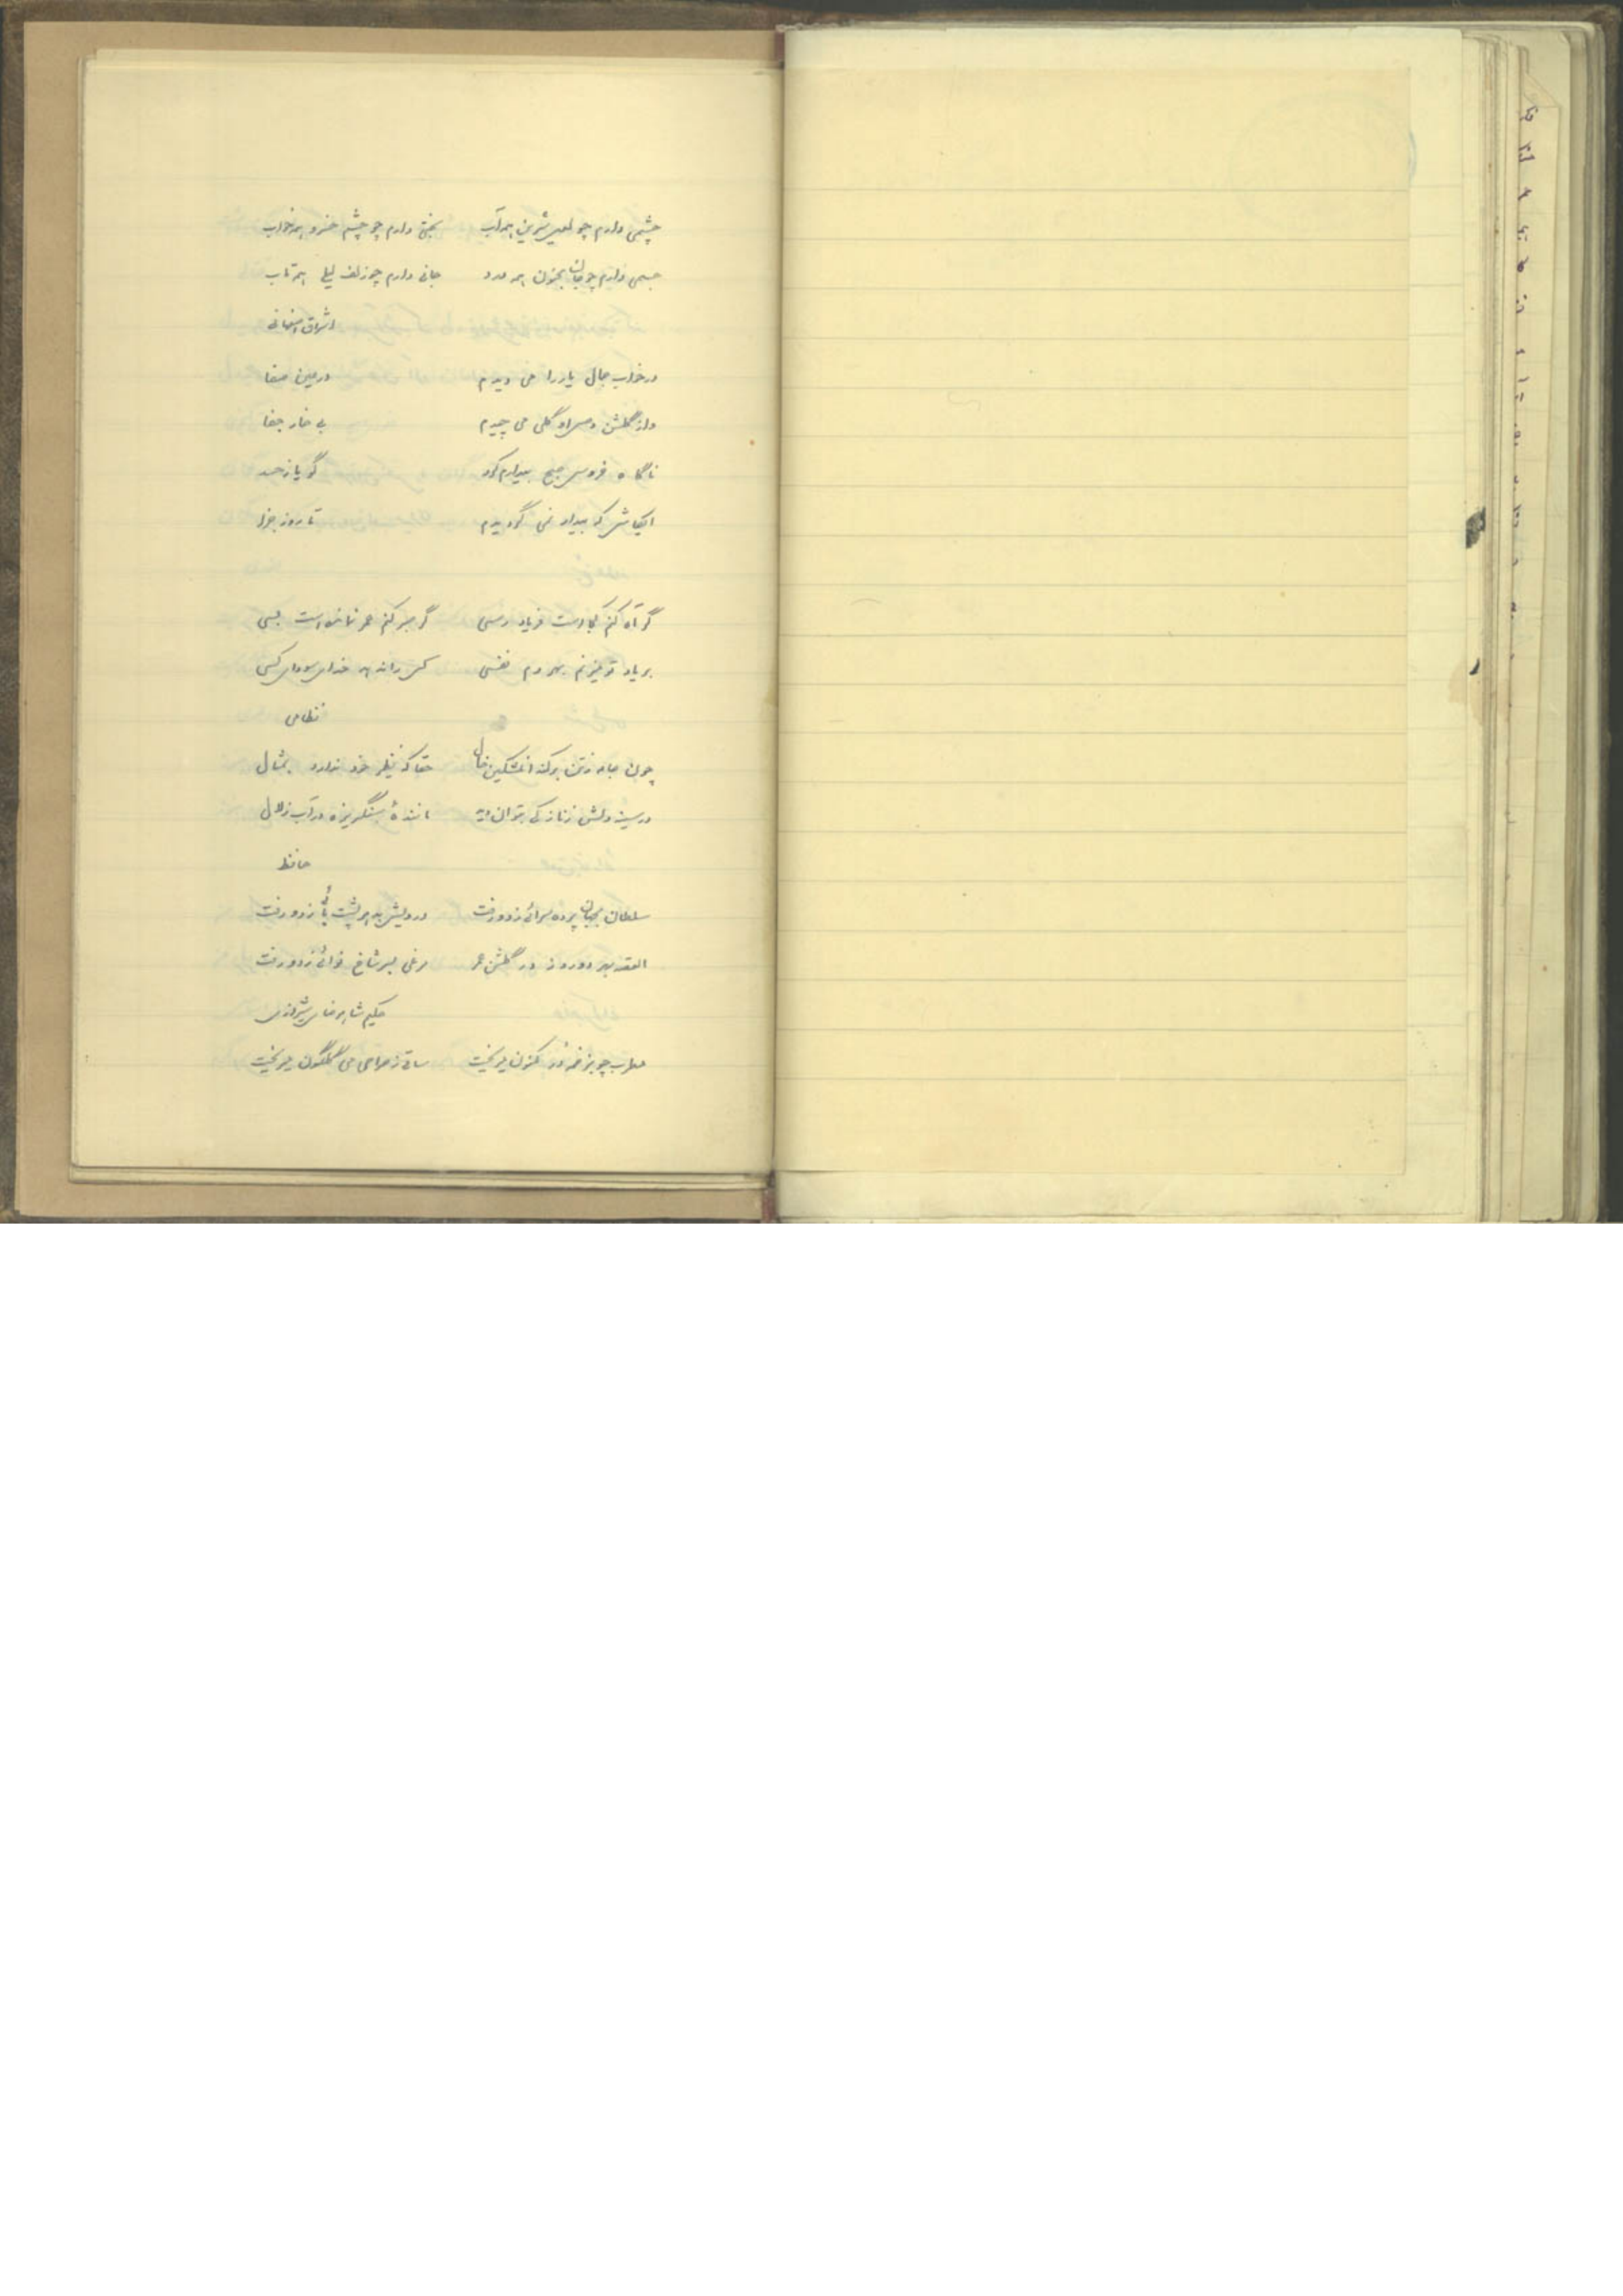 چشمی دارم چو لعل شیرین همه آب بختی دارم چو چشم خسرو همه خواب
جسمی دارم چو جان مجنون همه درد جانی دارم چو زلف لیلی همه تاب
اشراق اصفهانی
در خواب جمال یار را می دیدم در عین صفا
واز گلشن وصل او گلی می چیدم بی خار جفا
ناگاه خروس صبح بیدارم کرد گویا ز حسد
ایکاش که بیدار نمی گردیدم تا روز جزا
گر آه کنم کجاست فریاد رسی گر صبر کنم عمر نمانده است بسی
بر یاد تو میزنم بهر دم نفسی کس را ندهد خدای سودای کسی
نظامی
چون جامه ز تن برکند آن مشکین خال حقا که نظیر خود ندارد بمثال
در سینه دلش ز نازکی بتوان دید ماننده سنگریزه در آب زلال
حافظ
سلطان بجهان پرده سرائی زد و رفت درویش بدهر پشت پائی زد و رفت
القصه بهر دو روز در گلشن عمر مرغی بسر شاخ نوائی زد و رفت
حکیم شاه رضای شیرازی
مطرب چو بزخمه در مکنون میریخت ساقی ز صراحی می گلگون میریخت